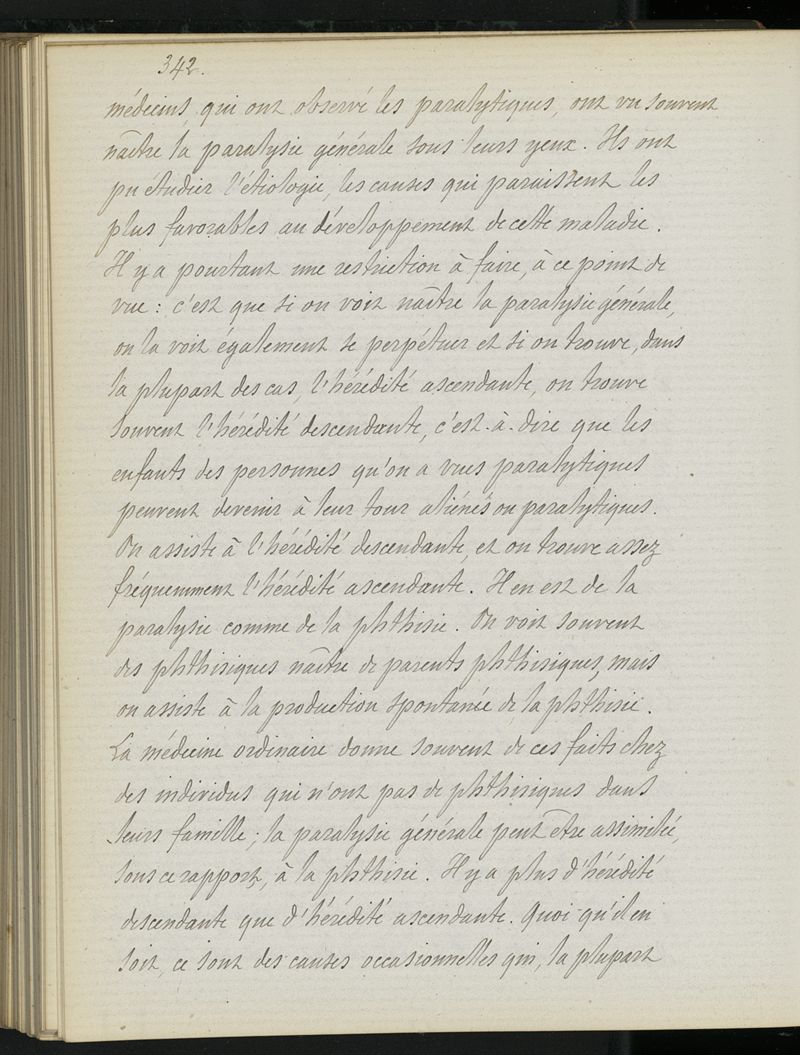 342.
médecins, qui ont observé les paralytiques, ont vu souvent
naître la paralysie générale sous leurs yeux. Ils ont
pu étudier l'étiologie, les causes qui paraissent les
plus favorables au développement de cette maladie.
Il y a pourtant une restriction à faire, à ce point de
vue : c'est que si on voit naître la paralysie générale,
on la voit également se perpétuer et si on trouve, dans
la plupart des cas, l'hérédité ascendante, on trouve
souvent l'hérédité descendante, c'est-à-dire que les
enfants des personnes qu'on a vues paralytiques
peuvent devenir à leur tour aliénés ou paralytiques.
On assiste à l'hérédité descendante, et on trouve assez
fréquemment l'hérédité ascendante. Il en est de la
paralysie comme de la phthisie. On voit souvent
des phthisiques naître de parents phthisiques, mais
on assiste à la production spontanée de la phthisie.
La médecine ordinaire donne souvent de ces faits chez
des individus qui n'ont pas de phthisiques dans
leurs famille ; la paralysie générale peut être assimilée,
sous ce rapport, à la phthisie. Il y a plus d'hérédité
descendante que d'hérédité ascendante. Quoi qu'il en
soit, ce sont des causes occasionnelles qui, la plupart